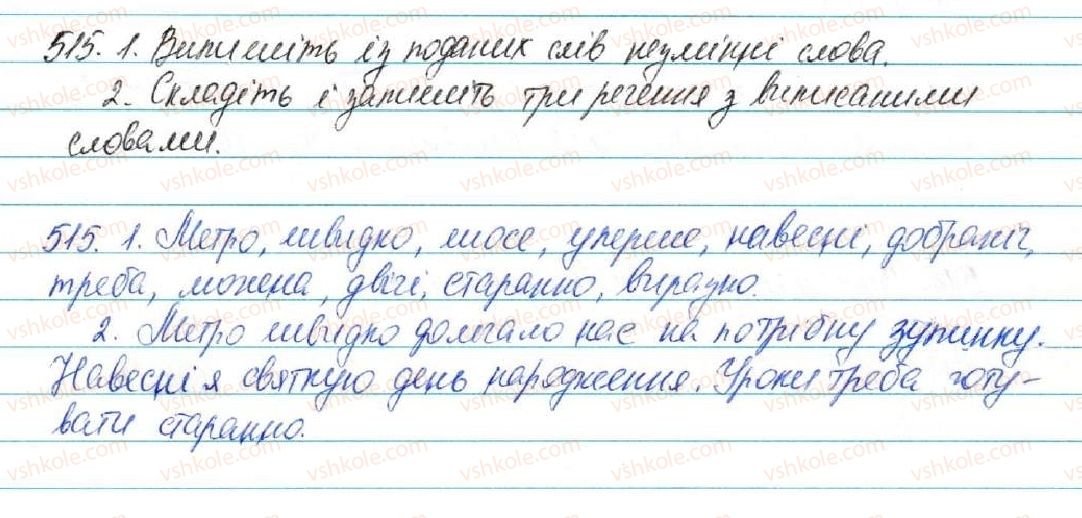 515. 1. Випишіть із поданих слів незмінні слова.
2. Складіть і запишіть три речення з виписаними
словами.
515. 1. Метро, швидко, шосе, уперше, навесні, добраніч,
треба, можна, двічі, старанно, виразно.
2. Метро швидко домчало нас на потрібну зупинку.
Навесні я святкую день народження. Уроки треба готу-
вати старанно.